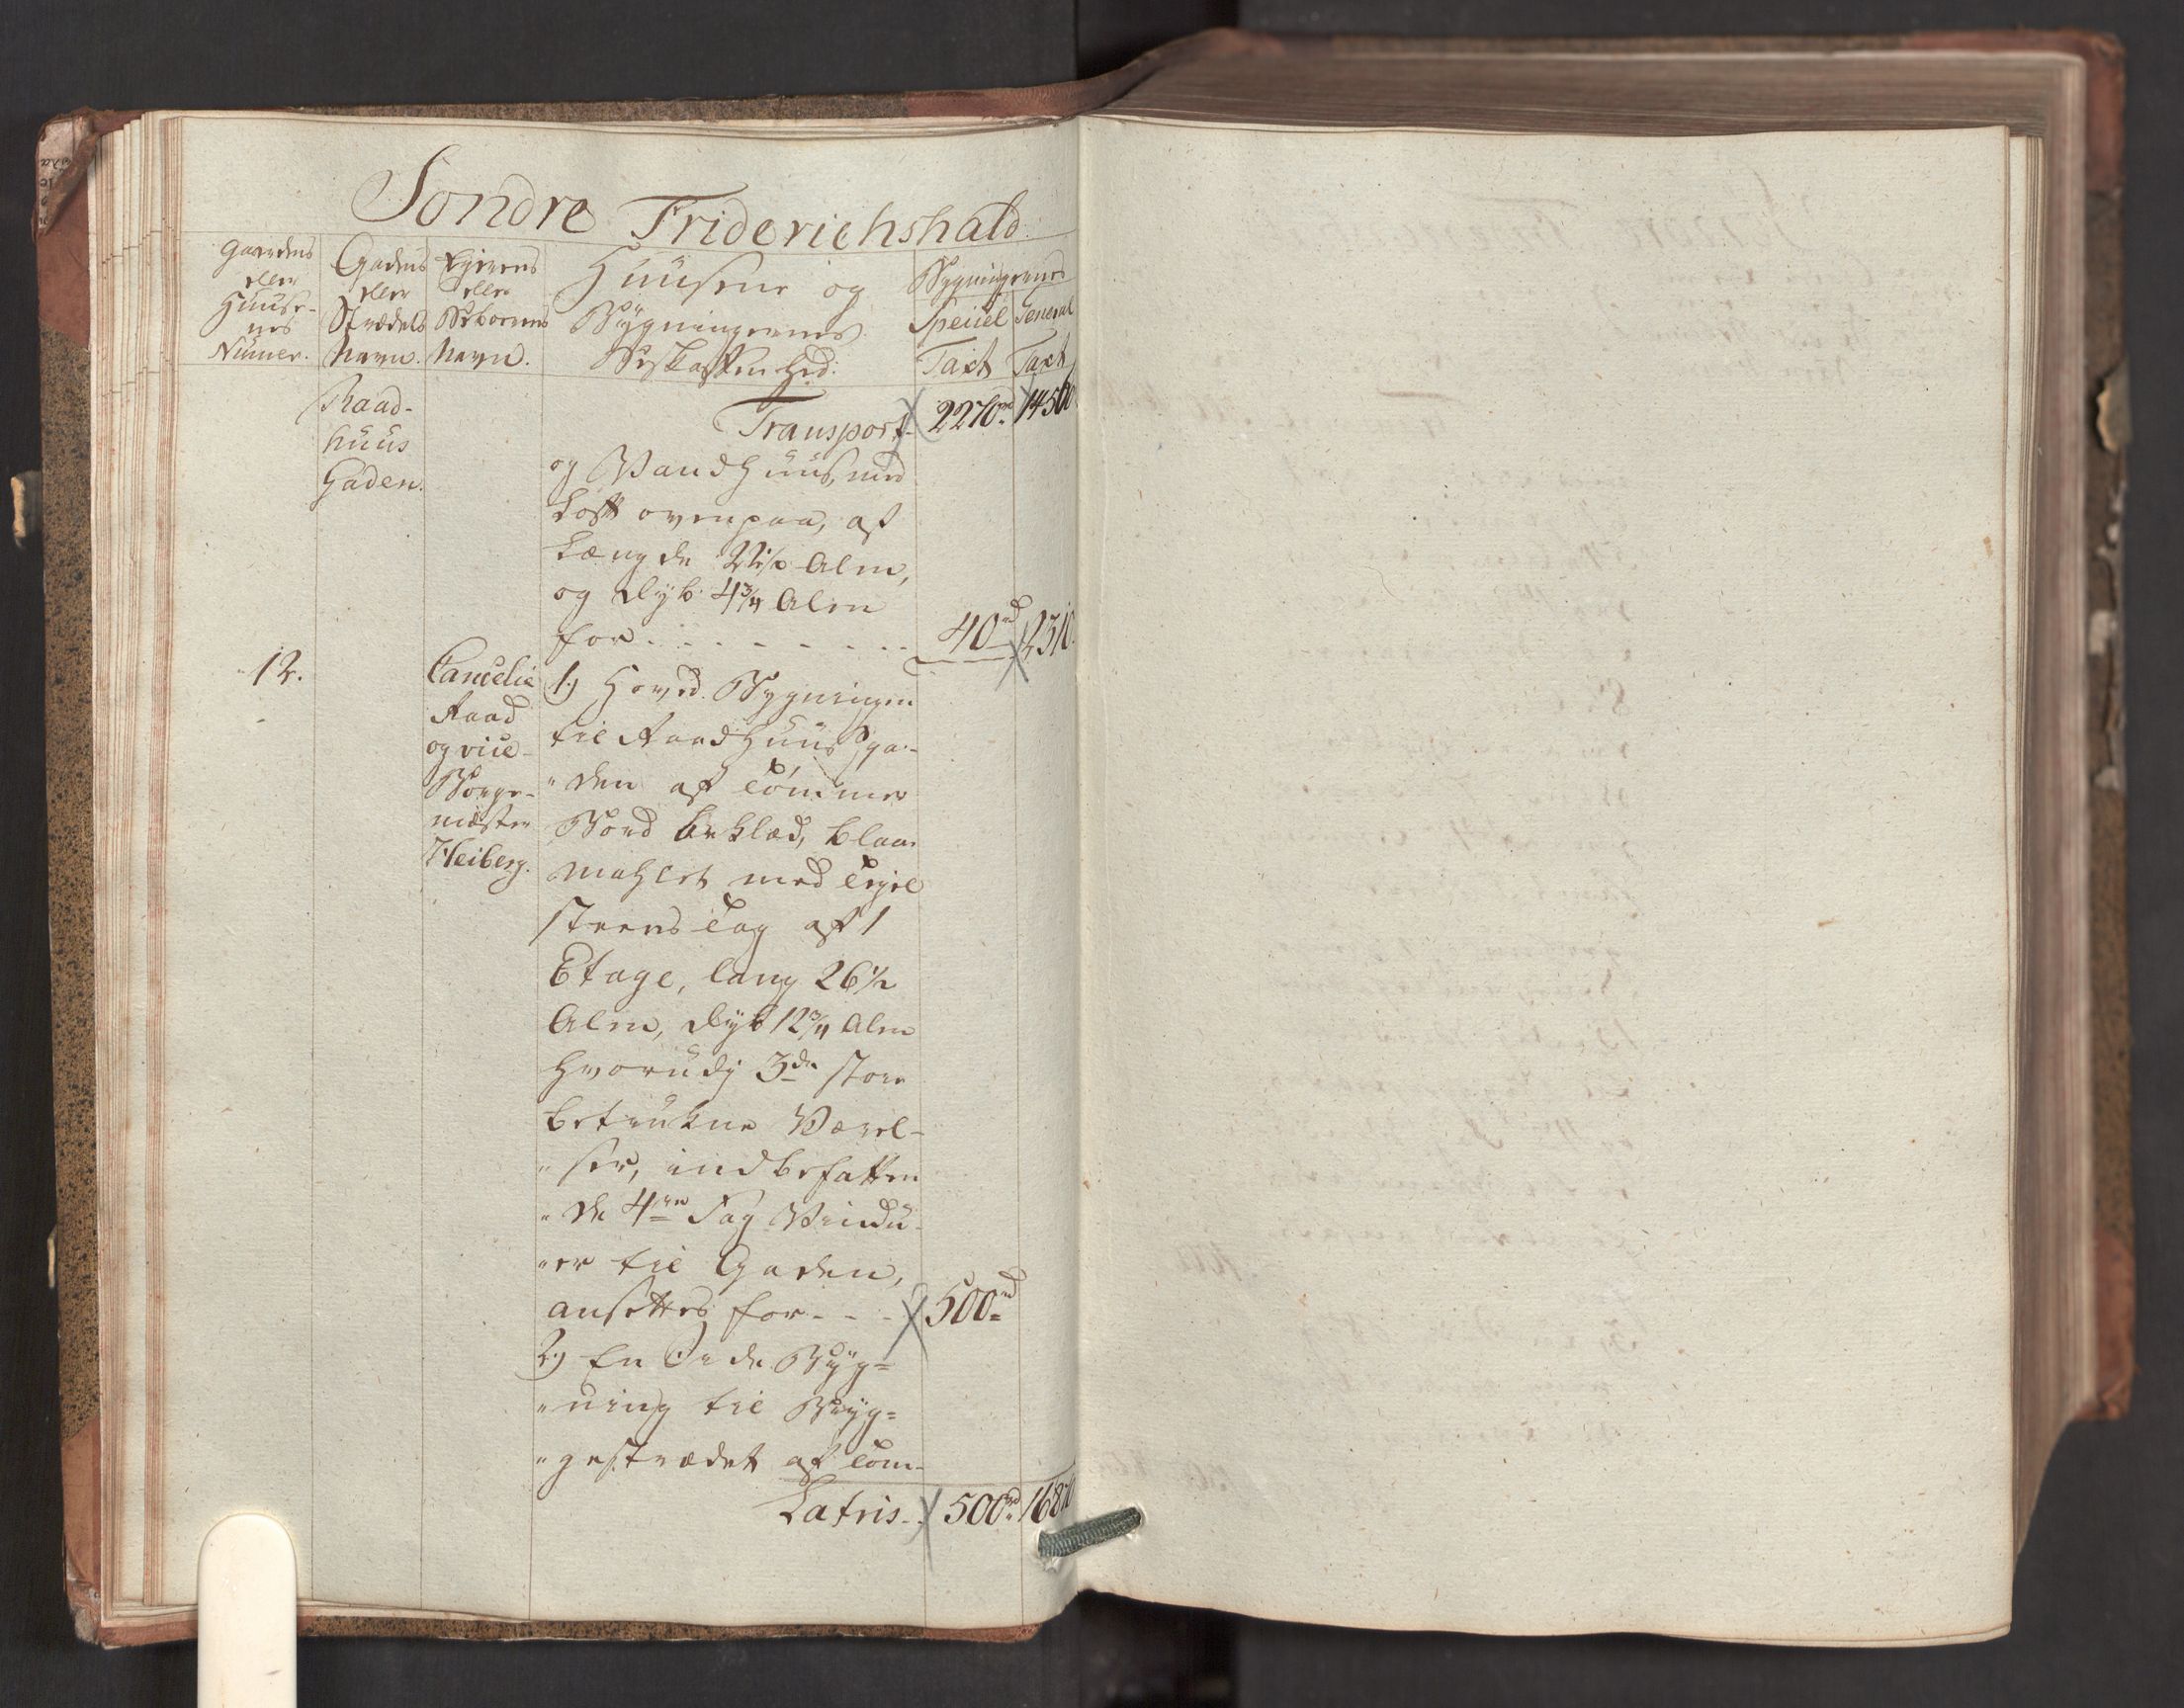 Sondre Friderichshald.
Gaardens eller Huuse-nes Numer.
Gadens eller Strædets Navn.
Eyerens eller Beboerens Navn.
Huusene og Bygningernes Beskaffenhed.
Bygningernes
Speciel Taxt
General Taxt
Raad-
huus
Gaden.
Transport 2270 rd 14560
og Vandhuus, med
Loft ovenpaa, af
Længde 22 1/2 Alen,
og dyb 4 3/4 Alen
for - - - - - - - 40 rd 2310
12.
Cancelie
Raad
og vice
Borge-
mester
Heiberg.
1.) Hoved Bygningen
til Raadhuus ga-
"den af Tømmer
Bord beklæd, blaa
mahlet med Tegel
steens Tag af 1
Etage, lang 26 1/2
Alen, dyb 12 3/4 Alen
hvorudj 3de store
betrukne Værel-
"ser, indbefatten
"de 4re Fag Vindu-
"er til Gaden,
ansettes for - - - 500 rd
2.) En Side Byg=
"ning til Bryg=
"gestrædet af Tøm-
Latris. 500 rd 1687